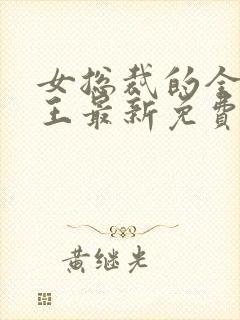 女总裁的全
王最新免費
黄继光